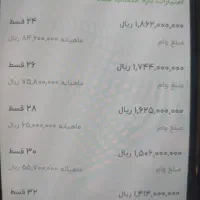 ۲۴ قسط ۱,۸۶۲,۰۰۰,۰۰۰ ریال
ماهیانه ۸۴,۶۰۰,۰۰۰ ریال مبلغ وام
۲۶ قسط ۱,۷۴۴,۰۰۰,۰۰۰ ریال
ماهیانه ۷۵,۸۰۰,۰۰۰ ریال مبلغ وام
۲۸ قسط ۱,۶۲۵,۰۰۰,۰۰۰ ریال
ماهیانه ۶۵,۰۰۰,۰۰۰ ریال مبلغ وام
۳۰ قسط ۱,۵۰۶,۰۰۰,۰۰۰ ریال
ماهیانه ۵۵,۷۰۰,۰۰۰ ریال مبلغ وام
۳۲ قسط ۱,۴۱۴,۰۰۰,۰۰۰ ریال